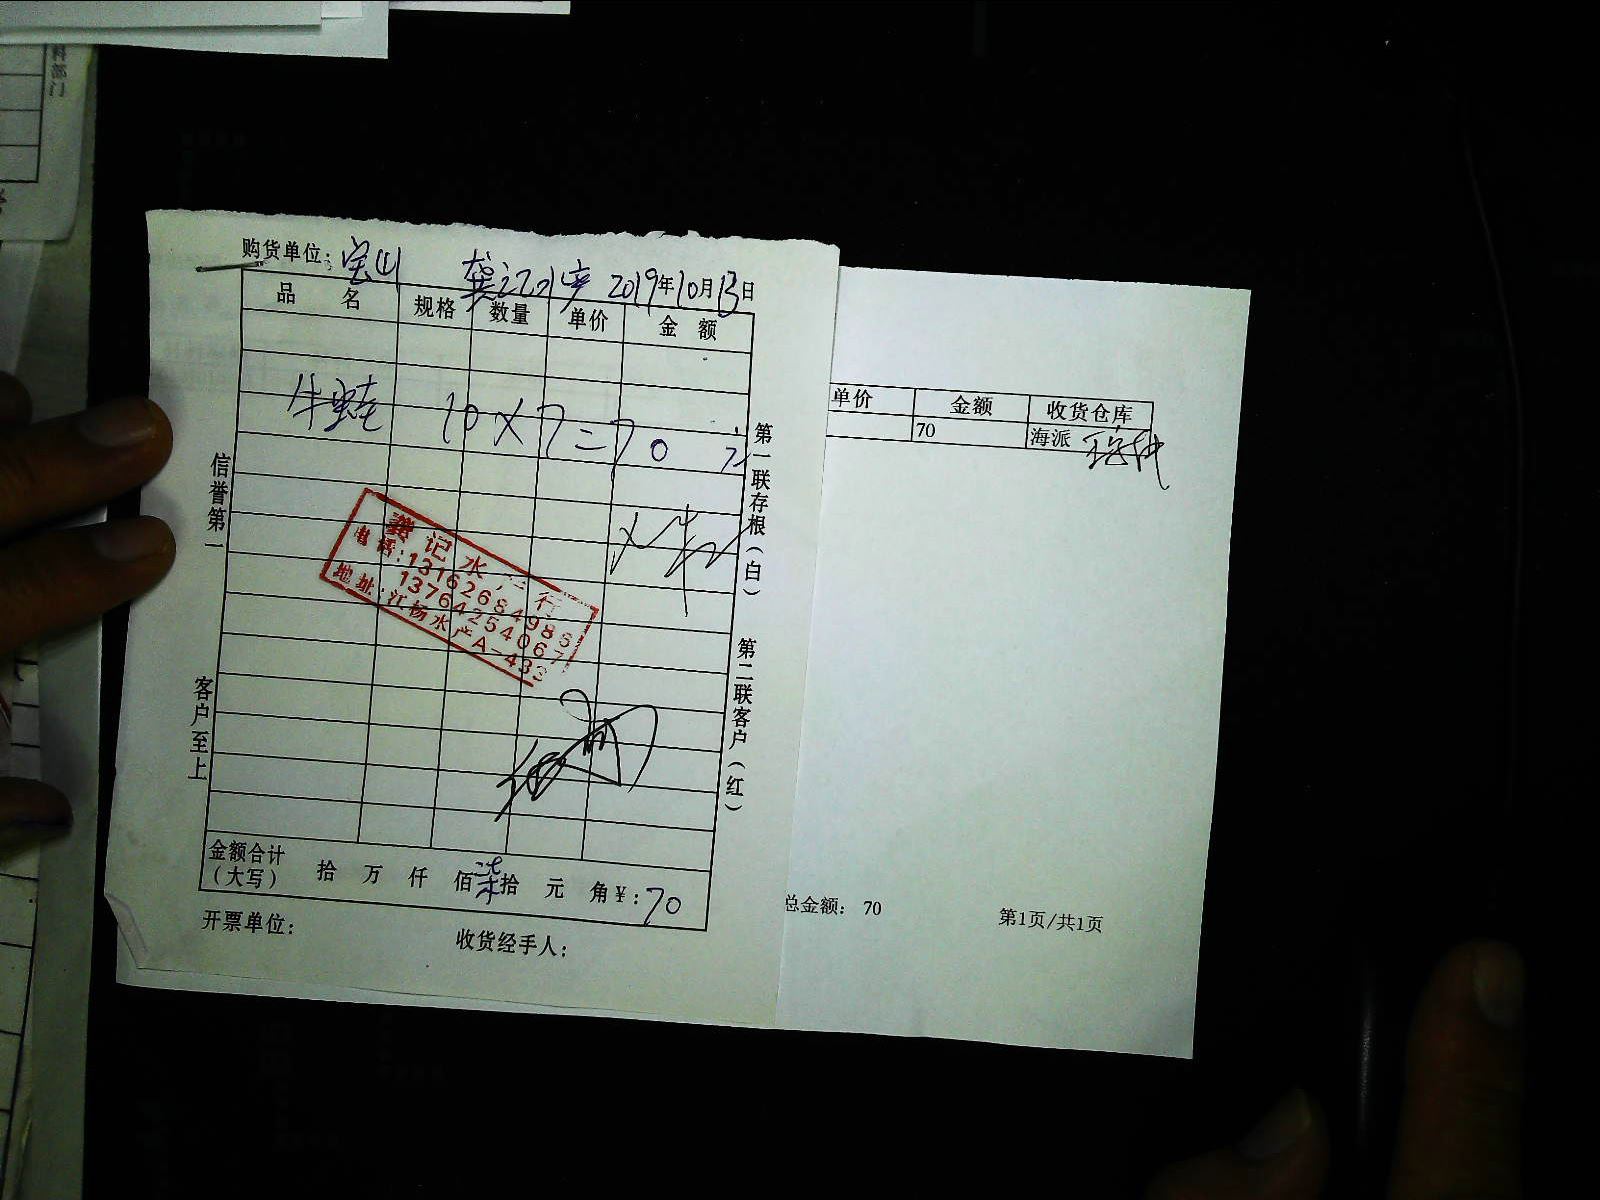 料部门
购货单位：宝山 龚记水产 2019年10月13日
品 名 规格 数量 单价 金 额
牛蛙 10×7=70 元
信誉第一
客户至上
第一联存根（白）
第二联客户（红）
龚记水产行
电话：13162684986
13764254067
地址：江杨水产A-433
金额合计（大写） 拾 万 仟 佰 柒拾 元 角 ¥：70
开票单位：
收货经手人：
单价 金额 收货仓库
70 海派
总金额： 70
第1页/共1页